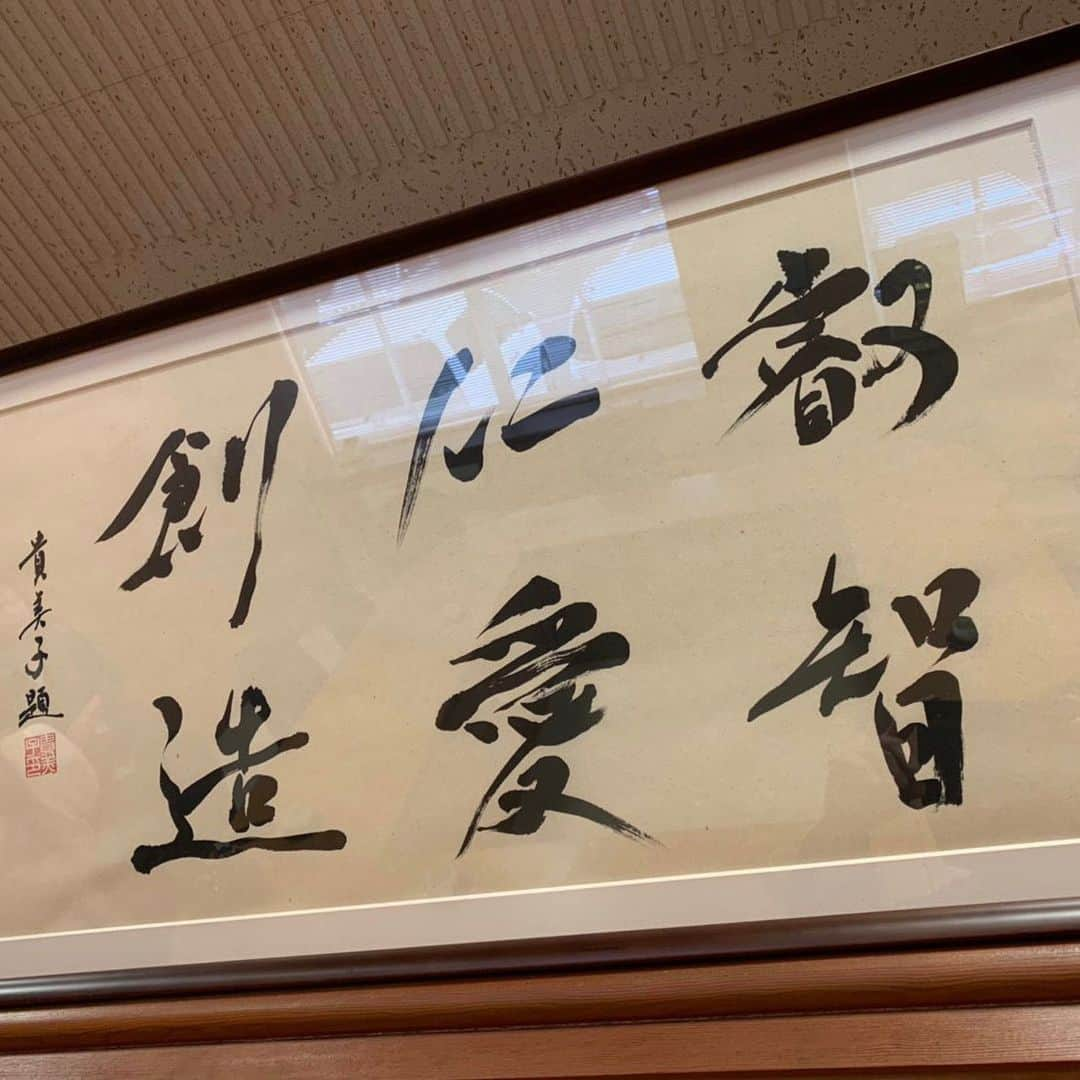 叡智
仁愛
創造
貴美子題